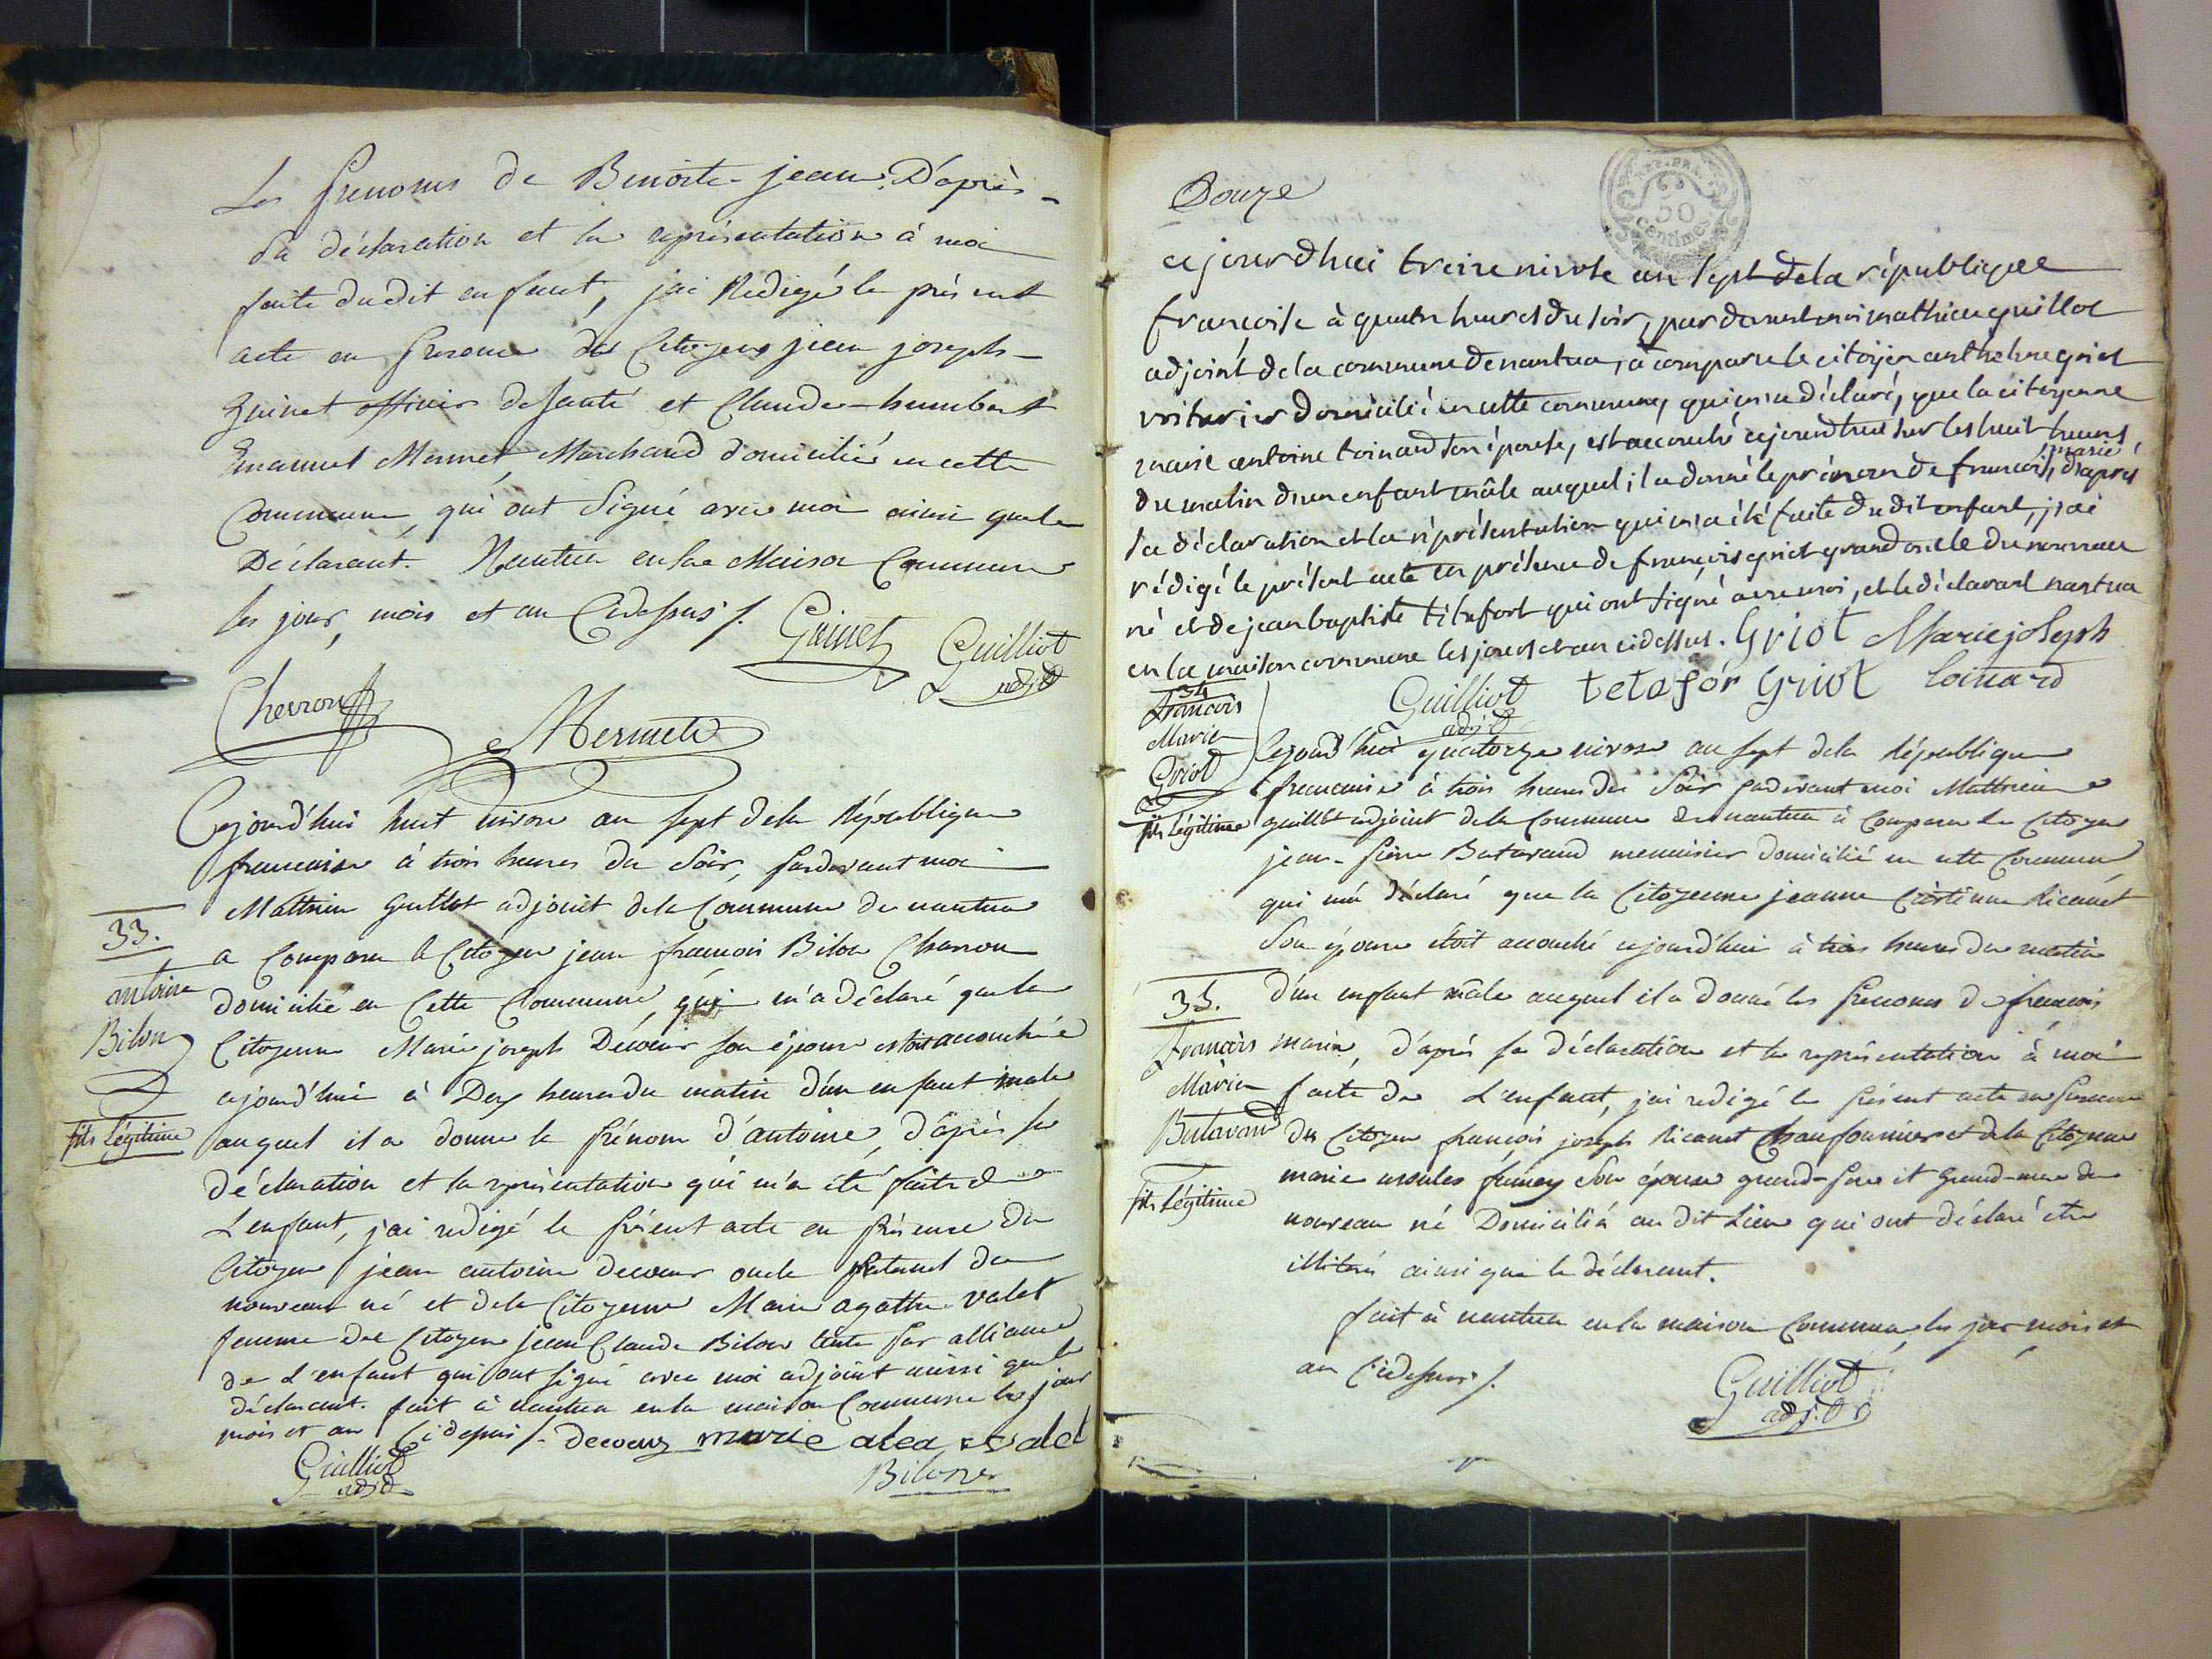 Les prenoms de Benoite-jean. D'après
sa déclaration et la représentation à moi
faite dudit enfant, jai Redigé le présent
acte en presence des Citoyens jean joseph
Guinet officier de santé et Claude-humbert
Emanuel Mermet Marchand domiciliés en cette
Commune, qui ont signé avec moi ainsi que le
Déclarant. Nantua en la Maison Commune
les jour, mois et an Cidessus /.
Guinet
Guilliot
adj.t
Chevron
Mermet
Cejourd'hui huit nivose an sept de la République
francaise à trois heures du soir, pardevant moi
Mathieu Guillot adjoint de la Commune de nantua
33.
a comparu le Citoyen jean francois Bilon Charron
antoine
domicilié en Cette Commune, qui m'a déclaré que la
Bilon
Citoyenne Marie joseph Decoeur son épouse etoit accouchée
cejourd'hui à Dix heures du matin d'un enfant male
fils légitime
auquel il a donné le prénom d'antoine, d'après sa
déclaration et la représentation qui m'a été faite de
L'enfant, j'ai redigé le présent acte en présence du
Citoyen jean antoine decoeur oncle paternel du
nouveau né et de la Citoyenne Marie agathe valet
femme du Citoyen jean Claude Bilon tante par alliance
de L'enfant qui ont signé avec moi adjoint ainsi que le
déclarant. fait à nantua en la maison Commune les jour
mois et an Cidessus /. decoeur marie valet
Guilliot
adj.t
Bilon
Douze
50
Centimes
cejourdhui treize nivose an sept de la république
françoise à quatre heures du soir, par devant moi mathieu guilliot
adjoint de la commune de nantua, a comparu le citoyen anthelme griot
voiturier domicilié en cette commune, qui m'a déclaré, que la citoyenne
marie antoine toinard son épouse, est accouché cejourdhui sur les huit heures,
marie
du matin d'un enfant mâle auquel il a donné le prénom de francois, d'aprés
sa déclaration et la réprésentation qui m'a été faite du dit enfant, j'ai
rédigé le présent acte en présence de françois griot grand oncle du nouveau
né et de jean baptiste tetafort qui ont signé avec moi, et le déclarant nantua
en la maison commune les jours et an cidessus. Griot Marie joseph
34
François
Marie
Griot
fils légitime
Guilliot
adj.t
tetafor Griot toinard
Cejourd'hui quatorze nivose an sept de la République
francaise à trois heures du soir pardevant moi Mathieu
guillot adjoint de la Commune de nantua à Comparu le Citoyen
jean-pierre Butavand menuisier domicilié en cette Commune
qui m'a déclaré que la Citoyenne jeanne Ricanet
Son épouse étoit accouché cejourd'hui à trois heures du matin
35.
d'un enfant mâle auquel il a donné les prenoms de francois
François
marie, d'après sa déclaration et la représentation à moi
Marie
faite de L'enfant, jai redigé le présent acte en presence
Butavand
du Citoyen françois joseph Ricanet Chaufournier et de la Citoyenne
fils légitime
marie ursules son épouse grand-pere et Grand-mere du
nouveau né Domiciliés au dit Lieu qui ont déclaré être
illitérés ainsi que le déclarant.
fait à nantua en la maison Commune, les jour mois et
an Cidessus /.
Guilliot
adj.t